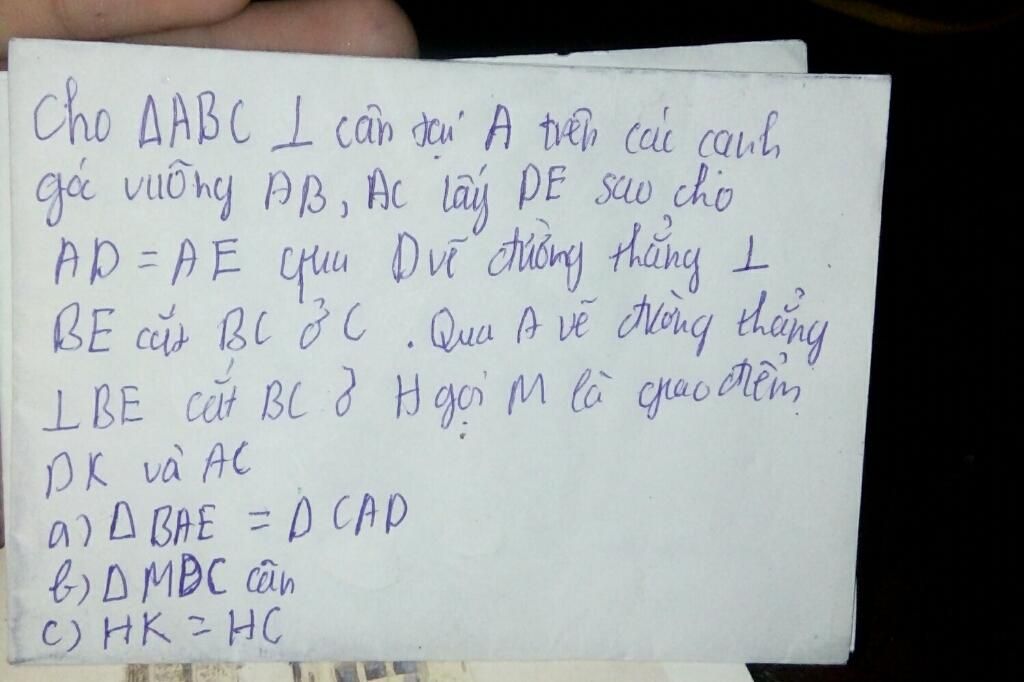 Cho ΔABC ⊥ cân tại A trên các cạnh
góc vuông AB, AC lấy DE sao cho
AD = AE qua D vẽ đường thẳng ⊥
BE cắt BC ở C . Qua A vẽ đường thẳng
⊥BE cắt BC ở H gọi M là giao điểm
DK và AC
a) Δ BAE = Δ CAD
b) Δ MDC cân
c) HK = HC